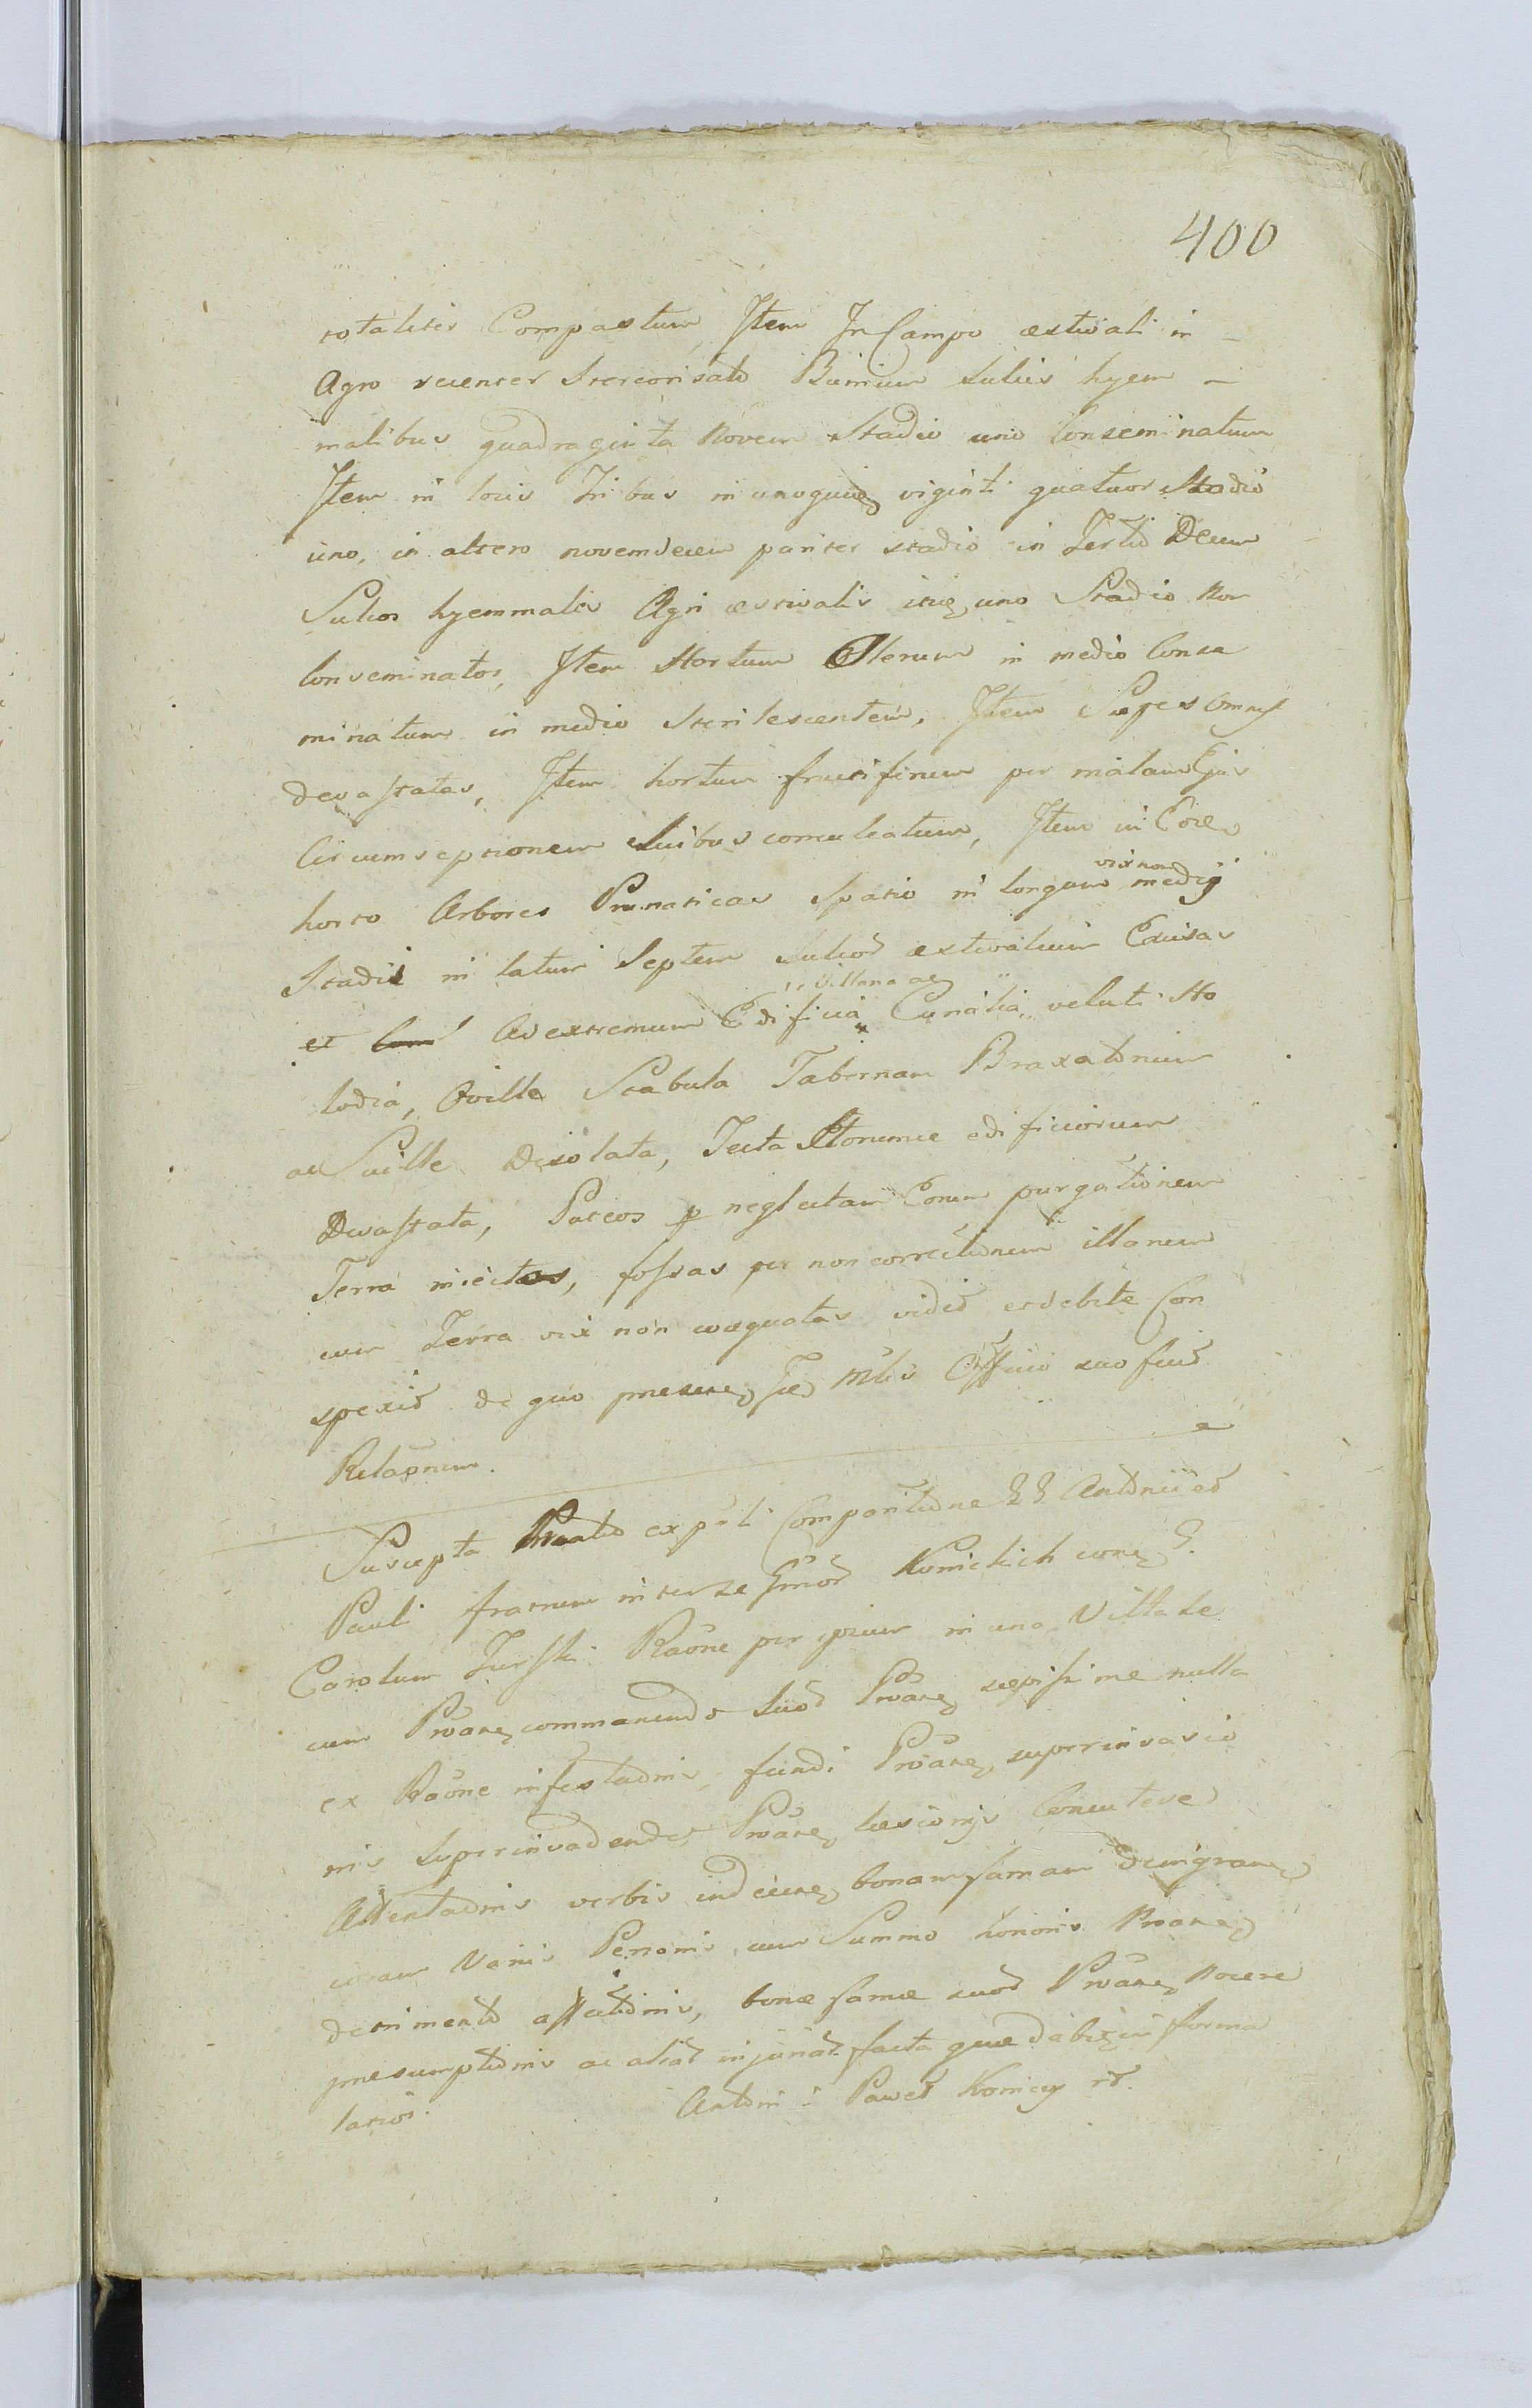 400
totaliter Compastum, Item In Campo æstivali in
Agro recenter Stercorisato Binium sulcis hyem
malibus quadraginta Novem Stadio uno Conseminatum
Item in locis Tribus in unoquoq viginti quatuor Stadio
uno, in altero novemdecem pariter stadio in Tertio Decem
Sulcos hyemmales Agri æstivalis itiq uno Stadio Non
Conseminatos, Item Hortum Olerum in medio Conse
minatum in medio Sterilescentem, Item Sepes omnes
devastatas, Item hortum fructiferum per malam Ejus
Circumseptionem Suibus conculcatum, Item in Eode
horto Arbores Prunaticas spatio in longum vix non medij
Stadii in latum Septem Sulcoꝝ æstivalium Excisas
et Ad extremum Edificia Villana ac Curialia, veluti Ho
lodia, Oville Stabula Tabernam Braxatorium
ac Suille Desolata, Tecta Horumce edificiorum
Devastata, Puteos p neglectam Eorum purgationem
Terra iniectos, fossas per non correctionem illarum
cum Terra vix non coæquatas vidit et debite Con
spexit de quo præsente Mlis Officio suo fecit
Relaōnem.
Suscepta ex pti Comparitione GG Antonii et
Pauli fratrum inter se Gnoꝝ Konickich cone G.
Carolum Turski Raōne per ipsum in una Villa se
cum Proāne commanendo Suoꝝ Proāne sæpissime nulla
ex Raōne infestaōnis, fundi Proāne, superinvasio
nis Superinvadendos Proāne læsionis
Attentaōnis verbis indecene bonam famam denigrane
coram Variis Personis, cum Summo honoris Proāne
detrimento affectionis, bonæ famæ suoꝝ Proāne Nocere
præsumptionis ac aliaꝝ injuriaꝝ facta quæ debite in forma
latior. Antoni i Paweł Konicy rꝝ.